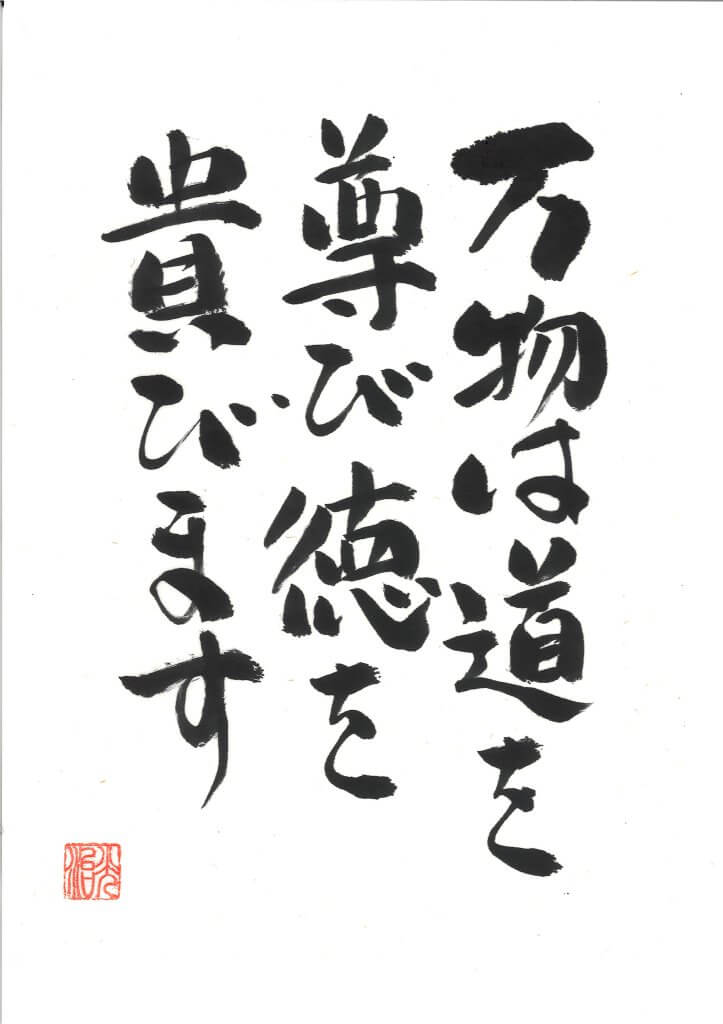 万物は道を
尊び徳を
貴びます